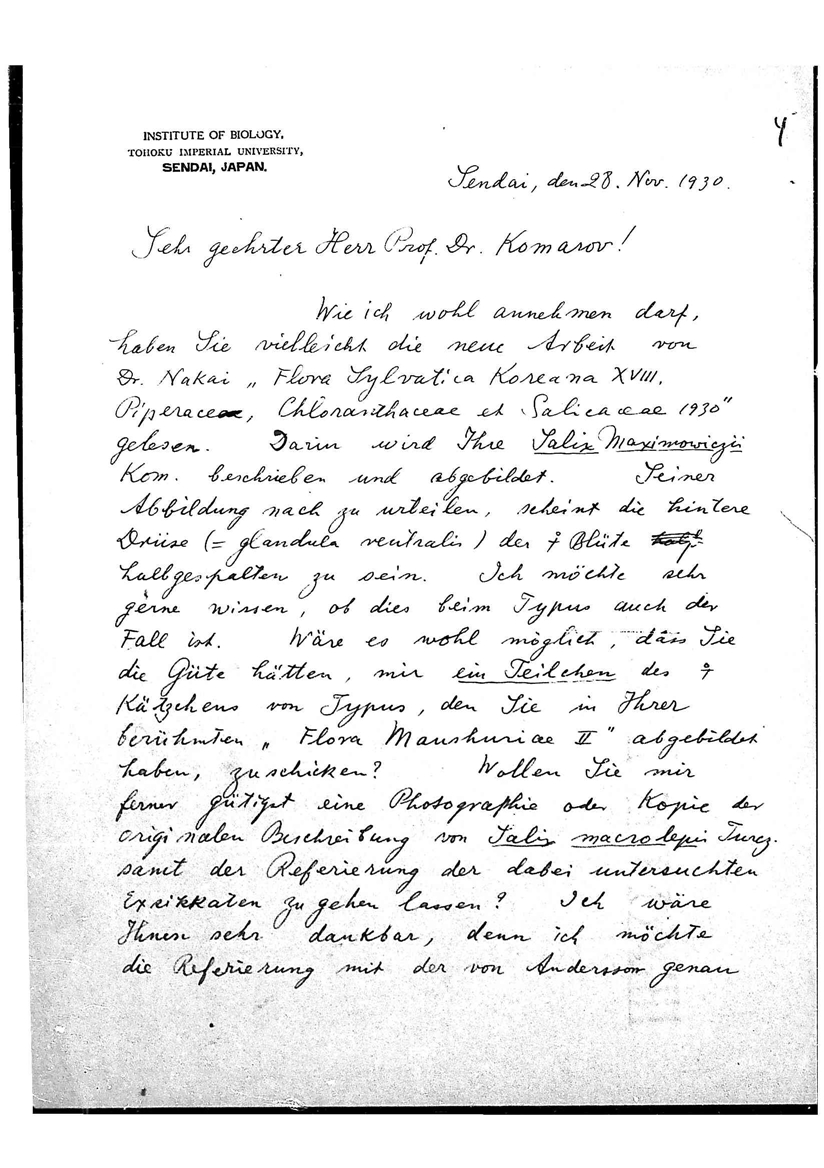 4
INSTITUTE OF BIOLOGY,
TOHOKU IMPERIAL UNIVERSITY,
SENDAI, JAPAN.
Sendai, den 28. Nov. 1930.
Sehr geehrter Herr Prof. Dr. Komarov!
Wie ich wohl annehmen darf,
haben Sie vielleicht die neue Arbeit von
Dr. Nakai „ Flora Sylvatica Koreana XVIII,
Piperaceae, Chloranthaceae et Salicaceae 1930"
gelesen. Darin wird Ihre Salix Maximowiczii
Kom. beschrieben und abgebildet. Seiner
Abbildung nach zu urteilen, scheint die hintere
Drüse (= glandula ventralis) der ♀ Blüte
halbgespalten zu sein. Ich möchte sehr
gerne wissen, ob dies beim Typus auch der
Fall ist. Wäre es wohl möglich, dass Sie
die Güte hätten, mir ein Teilchen des ♀
Kätzchens von Typus, den Sie in Ihrer
berühmten „ Flora Manshuriae II " abgebildet
haben, zuschicken? Wollen Sie mir
ferner gütigst eine Photographie oder Kopie der
originalen Beschreibung von Salix macrolepis Turcz.
samt der Referierung der dabei untersuchten
Exsikkaten zu gehen lassen? Ich wäre
Ihnen sehr dankbar, denn ich möchte
die Referierung mit der von Andersson genau